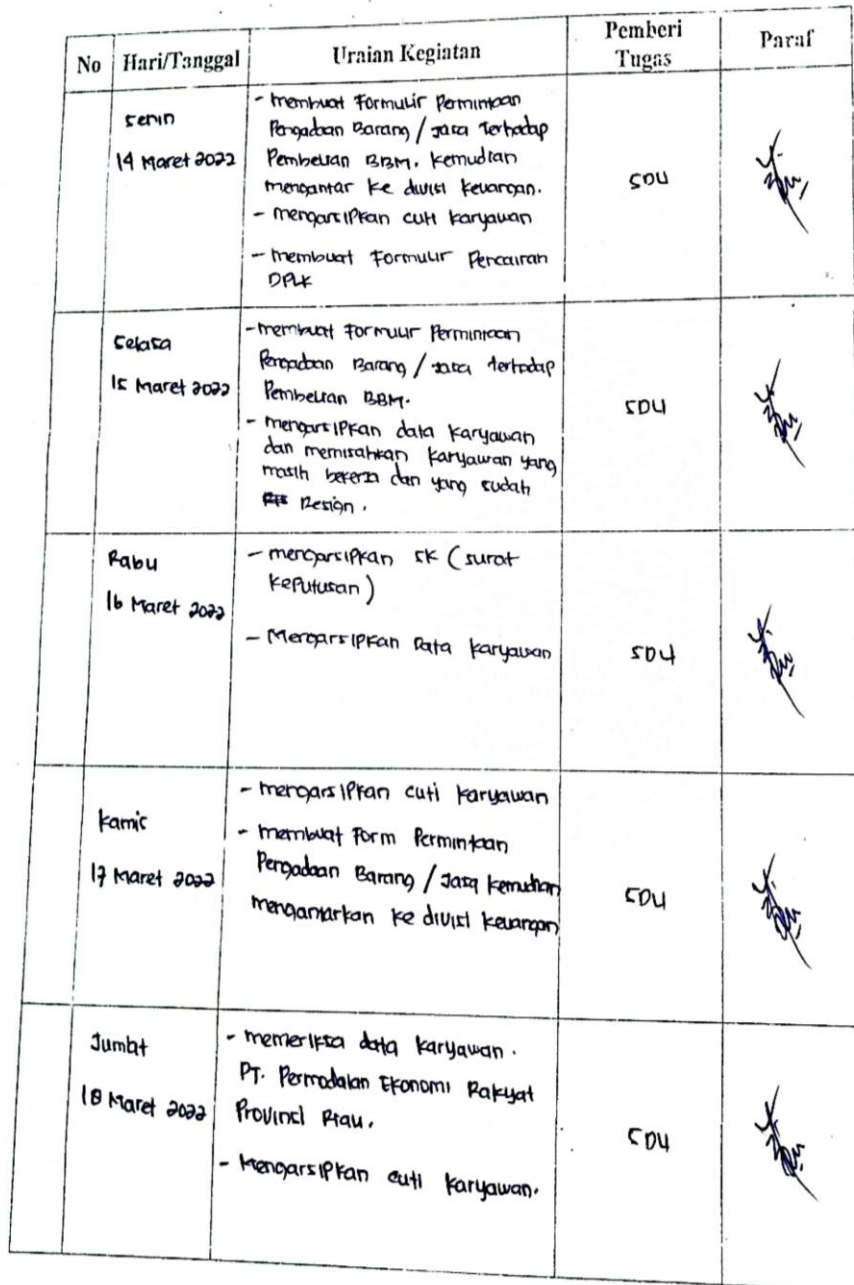 No Hari/Tanggal Uraian Kegiatan Pemberi Tugas Paraf
Senin
14 Maret 2022
- membuat Formulir Permintaan
Pengadaan Barang / Jasa Terhadap
Pembelian BBM. kemudian
mengantar ke divisi keuangan.
- mengarsipkan cuti karyawan
- membuat Formulir Pencairan
DPLK
SDU
Selasa
15 Maret 2022
- membuat Formulir Permintaan
Pengadaan Barang / Jasa terhadap
Pembelian BBM.
- mengarsipkan data karyawan
dan memisahkan karyawan yang
masih bekerja dan yang sudah
Resign.
SDU
Rabu
16 Maret 2022
- mengarsipkan SK (surat
keputusan)
- Mengarsipkan Data karyawan
SDU
Kamis
17 Maret 2022
- mengarsipkan cuti karyawan
- membuat Form Permintaan
Pengadaan Barang / Jasa kemudian
mengantarkan ke divisi keuangan
SDU
Jumat
18 Maret 2022
- memeriksa data karyawan.
PT. Permodalan Ekonomi Rakyat
Provinsi Riau.
- Mengarsipkan cuti karyawan.
SDU